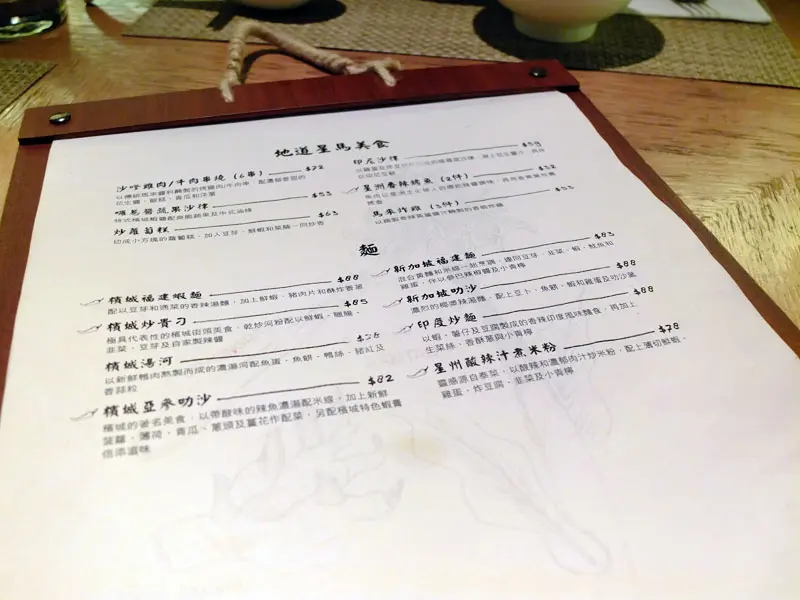 地道星馬美食
沙嗲雞肉/牛肉串燒 (6串) $72
以傳統馬來醬料醃製的烤雞肉/牛肉串，配濃郁香甜的
花生醬，飯糕，青瓜和洋蔥
囉惹醬蔬果沙律 $53
特式檳城蝦醬配爽脆蔬果及中式油條
炒蘿蔔糕 $63
切成小方塊的蘿蔔糕，加入豆芽，鮮蝦和菜脯一同炒香
印尼沙律 $58
星洲香辣烤魚 (2件) $52
馬來炸雞 (3件) $55
麵
檳城福建蝦麵 $88
配以豆芽和通菜的香辣湯麵，加上鮮蝦，豬肉片和酥炸香蔥
檳城炒貴刁 $85
極具代表性的檳城街頭美食，乾炒河粉配以鮮蝦，臘腸，
韭菜，豆芽及自家製辣醬
檳城湯河
以新鮮鴨肉熬製而成的濃湯河配魚蛋，魚餅，鴨絲，豬紅及
香蒜粒
檳城亞參叻沙 $82
檳城的著名美食，以帶酸味的辣魚濃湯配米線，加上新鮮
菠蘿，薄荷，青瓜，蔥頭及薑花作配菜，另配檳城特色蝦膏
倍添滋味
新加坡福建麵 $83
混合黃麵和米線一起烹調，連同豆芽，韭菜，蝦，魷魚如
雞蛋，伴以參巴辣椒醬及小青檸
新加坡叻沙 $88
濃烈的椰漿辣湯麵，配上豆卜，魚餅，蝦和雞蛋及叻沙葉
印度炒麵 $88
以蝦，薯仔及豆腐製成的香辣印度風味麵食，再加上
生菜絲，香酥蔥與小青檸
星洲酸辣汁煮米粉 $78
靈感源自泰菜，以酸辣和濃郁肉汁炒米粉，配上薄切鮮蝦，
雞蛋，炸豆腐，韭菜及小青檸